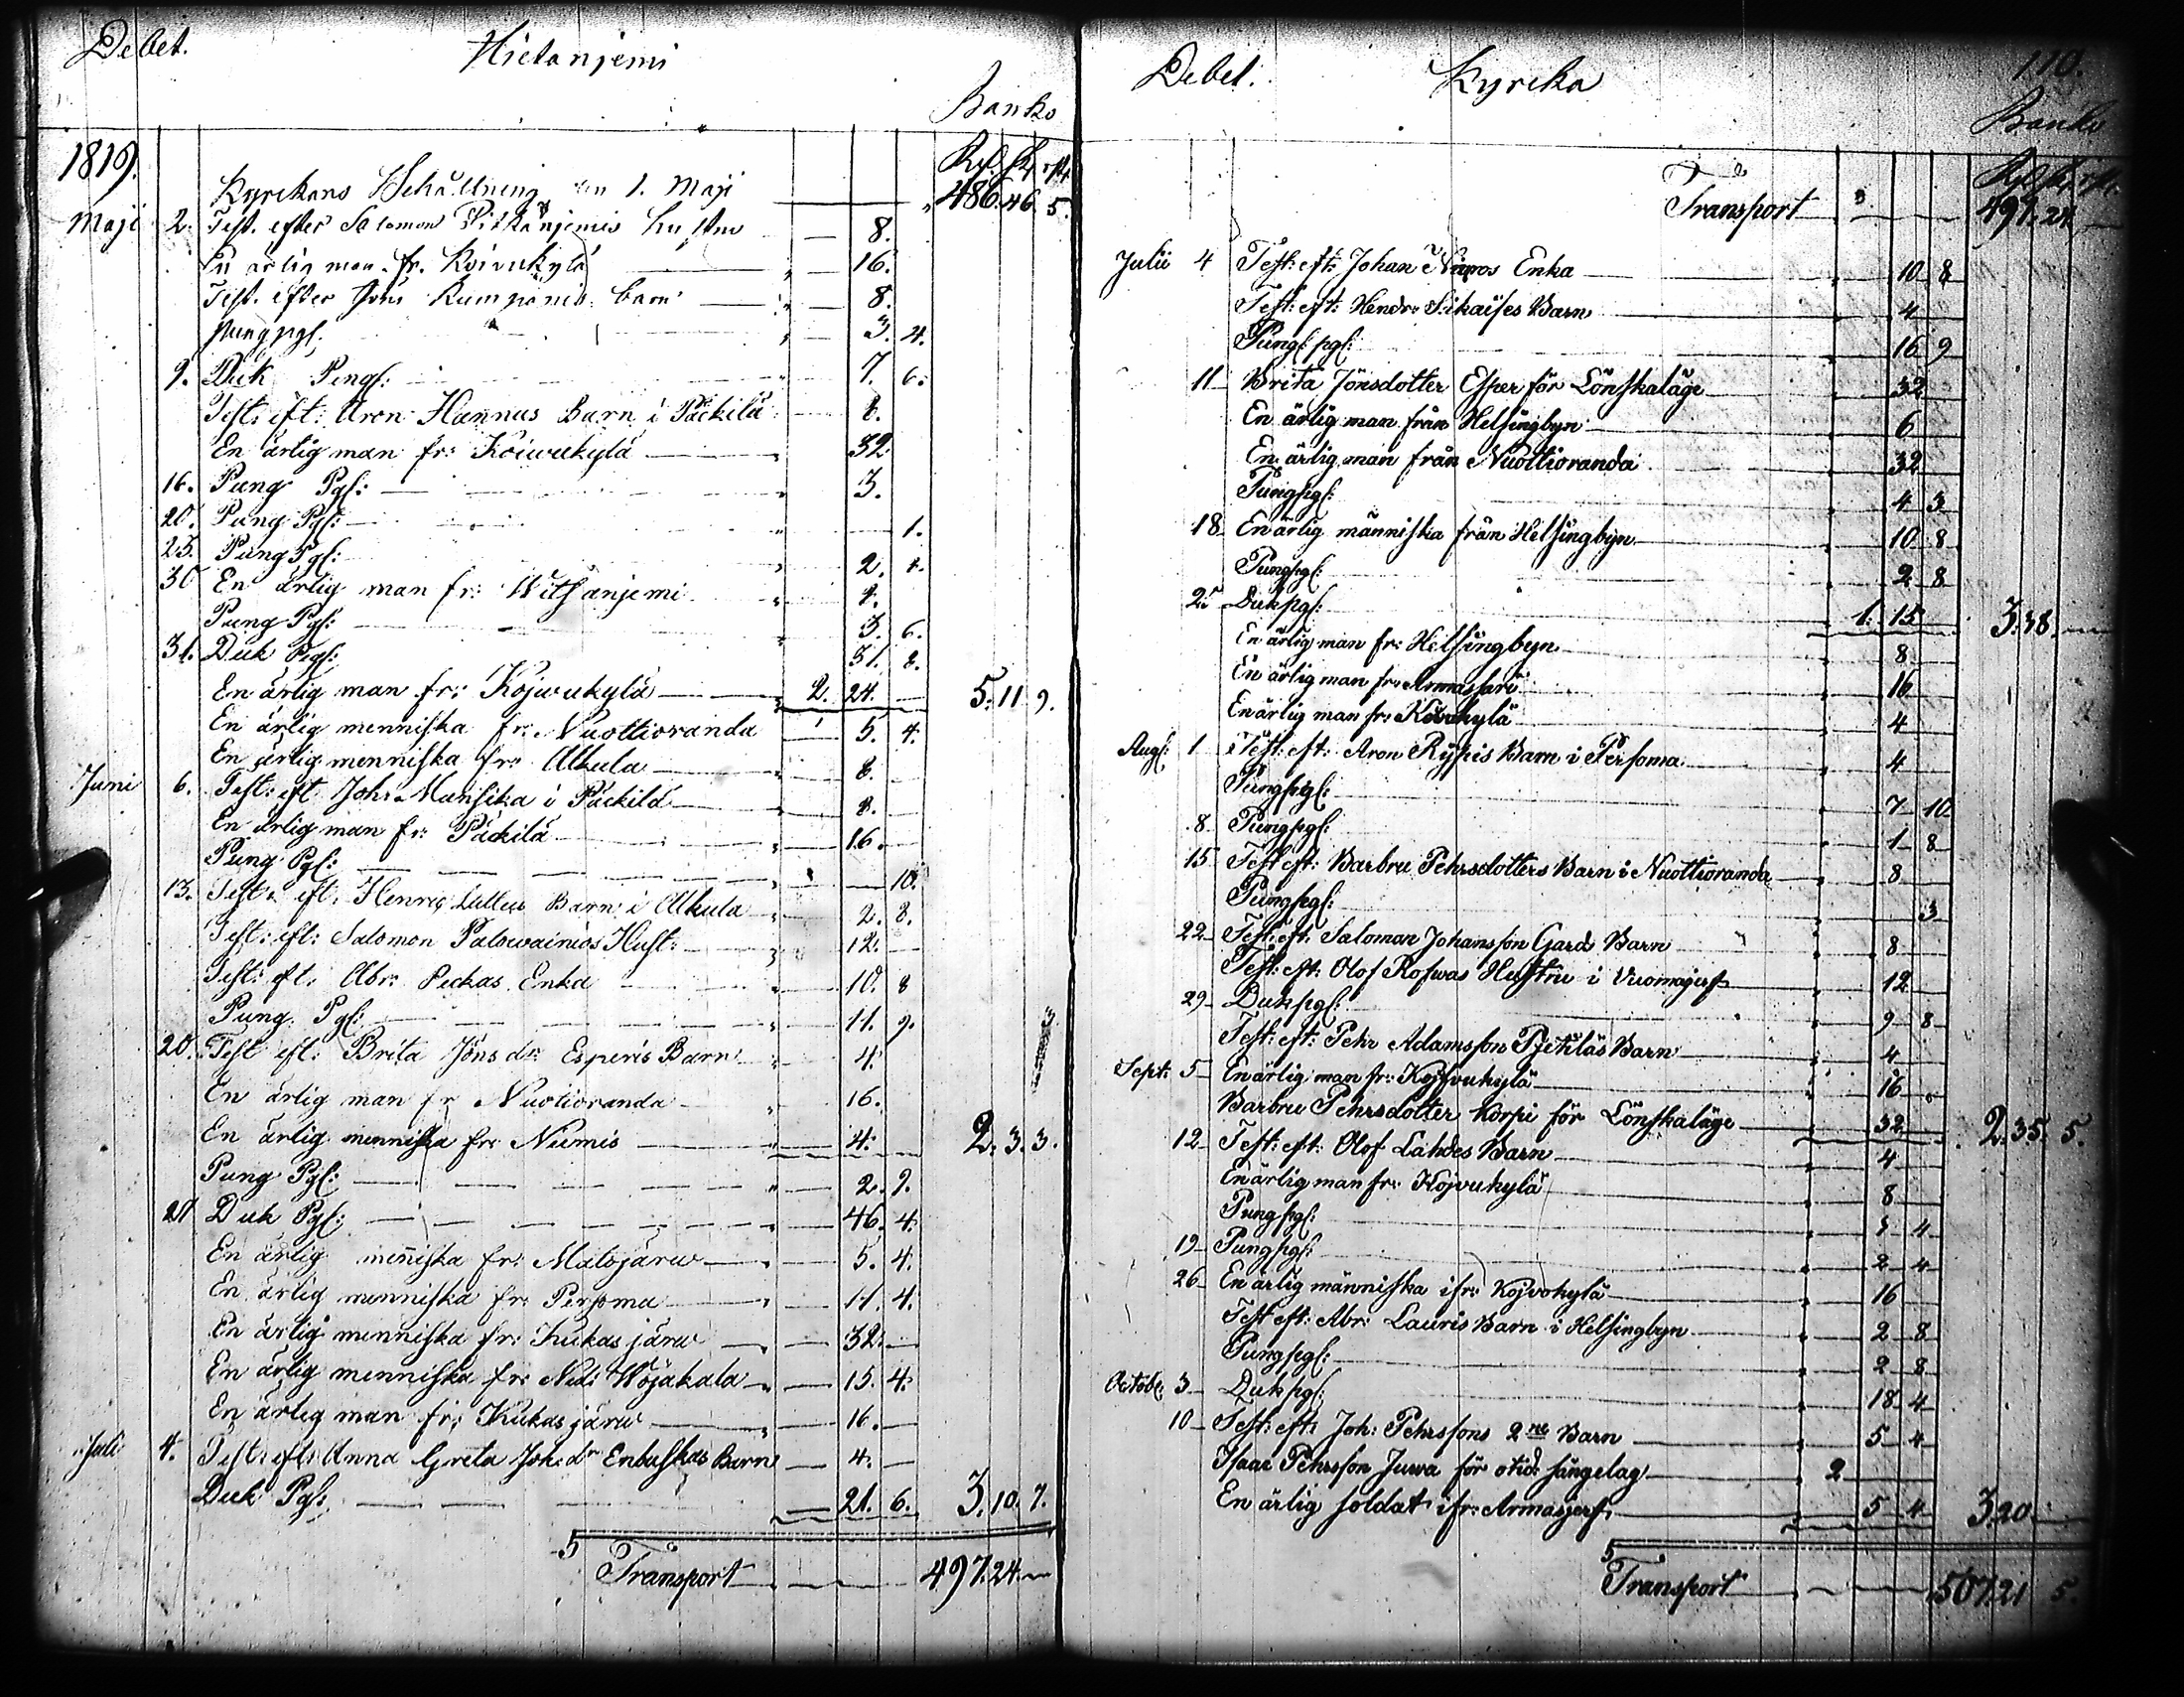 Debet. Hietanjemi
Banko
1819. Rgd. sk. rst.
Kyrckans Behållning den 1. Maji 486. 46. 5.
Maji 2. Test. efter Salomon Pitkänjemis hustru 8.
En ärlig man fr. Koivukylä 16.
Test. efter Jöns Rumpänis barn 8.
Pung pgr. 3. 4.
9. Duk Pengr: 7. 6.
Test: eft: Aron Hannus Barn i Päckilä 8.
En ärlig man fr: Koiwukylä 32
16. Pung Pgr: 3.
20. Pung Pgr: 1.
23. Pung Pgr: 2. 4.
30 En ärlig man fr: Witsanjemi 4.
Pung Pgr: 3. 6.
31. Duk Pegr: 31. 8.
En ärlig man fr: Kojwukylä 2. 24. 5. 11 9.
En ärlig menniska fr: Nuottioranda 5. 4.
En ärlig menniska fr: Alkula 8.
Juni 6. Test: eft Joh: Mansika i Päckilä 8.
En ärlig man fr: Päckilä 16.
Pung Pgr: 10.
13. Test: eft: Henric Lullus Barn i Alkula 2. 8.
Test: eft: Salomon Palowainios Hust: 12.
Test: eft: Abr: Peckas Enka 10. 8
Pung Pgr: 11. 9.
20. Test eft: Brita Jöns dr: Esperis Barn 4.
En ärlig man fr Nuotioranda 16.
En ärlig menniska fr: Niemis 4. 2. 3. 3.
Pung Pgr: 2. 9.
27 Duk Pgr: 46. 4.
En ärlig meniska fr: Matojärw 5. 4.
En ärlig menniska fr: Persoma 11. 4.
En ärlig menniska fr: Kukasjärw 32.
En ärlig menniska fr: Ned: Wojakala 15. 4.
En ärlig man fr: Kukasjärw 16.
Juli 4. Test: eft: Anna Greta Joh: dr Enbuskas Barn 4.
Duk Pgr: 21. 6. 3. 10. 7.
Transport 497. 24.
Debet. Kyrcka 110.
Banko
Rgd. sk. rst.
Transport 497. 24
Julii 4 Test: eft: Johan Enka 10 8
Test: eft: Hendr: Sikaises Barn 4
Pung: pgr: 16 9
11 Brita Jönsdotter Esper för Lönskaläge 32
En ärlig man från Helsingbyn 6
En ärlig man från Nuottioranda 32
Pungpgr: 4 3
18 En ärlig människa från Helsingbyn 10 8
Pungpgr: 2 8
25 Dukpgr: 1. 15 3. 38
En ärlig man fr: Helsingbyn 8
En ärlig man fr: Armassari 16
En ärlig man fr: Koivukylä 4
Aug: 1 Test: eft: Aron Rypis Barn i Persoma 4
Pungpgr: 7 10
8 Pungpgr: 1 8
15 Test eft: Barbru Pehrsdotters Barn i Nuottioranda 8
Pungpgr: 3
22 Test: eft: Saloman Johansson Gards Barn 8
Test: eft: Olof Roswas Hustru i Vuomajerf 12
29 Dukpgr: 9 8
Test: eft: Pehr Adamsson Pietiläs Barn 4
Sept: 5 En ärlig man fr: Kojvukylä 16
Barbru Pehrsdotter Korpi för Lönskaläge 32 2. 35. 5.
12 Test: eft: Olof Lahdes Barn 4
En ärlig man fr: Kojvukylä 8
Pungpgr: 5 4
19 Pungpgr: 2 4
26 En ärlig människa ifr: Kojvokylä 16
Test eft: Abr: Lauris Barn i Helsingbyn 2 8
Pungpgr: 2 8
Octob: 3 Dukpgr: 18 4
10 Test: eft: Joh: Pehrssons 2ne Barn 5 4
Isaac Pehrsson Juwa för otid: sängelag 2
En ärlig soldat ifr: Armasjerf 5 4 3. 20.
Transport 507. 21 5.